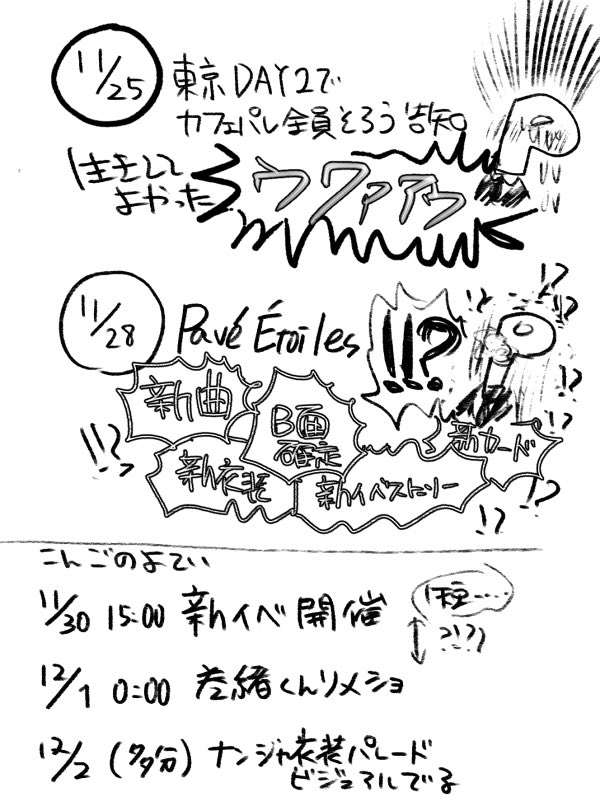 11/25
東京DAY2で
カフェパレ全員そろう告知。
生きてて
よかった
ウワァアゥ
11/28
Pavé Étoiles
!!?
新曲
B面
確定
新カード
!!?
新衣装
新イベストーリー
!?
!?
!?
!?
!?
!?
こんごのよてい
11/30 15:00 新イベ開催
12/1 0:00 巻緒くんリメショ
?!?)
12/2 (多分) ナンジャ衣装パレード
ビジュアルでる